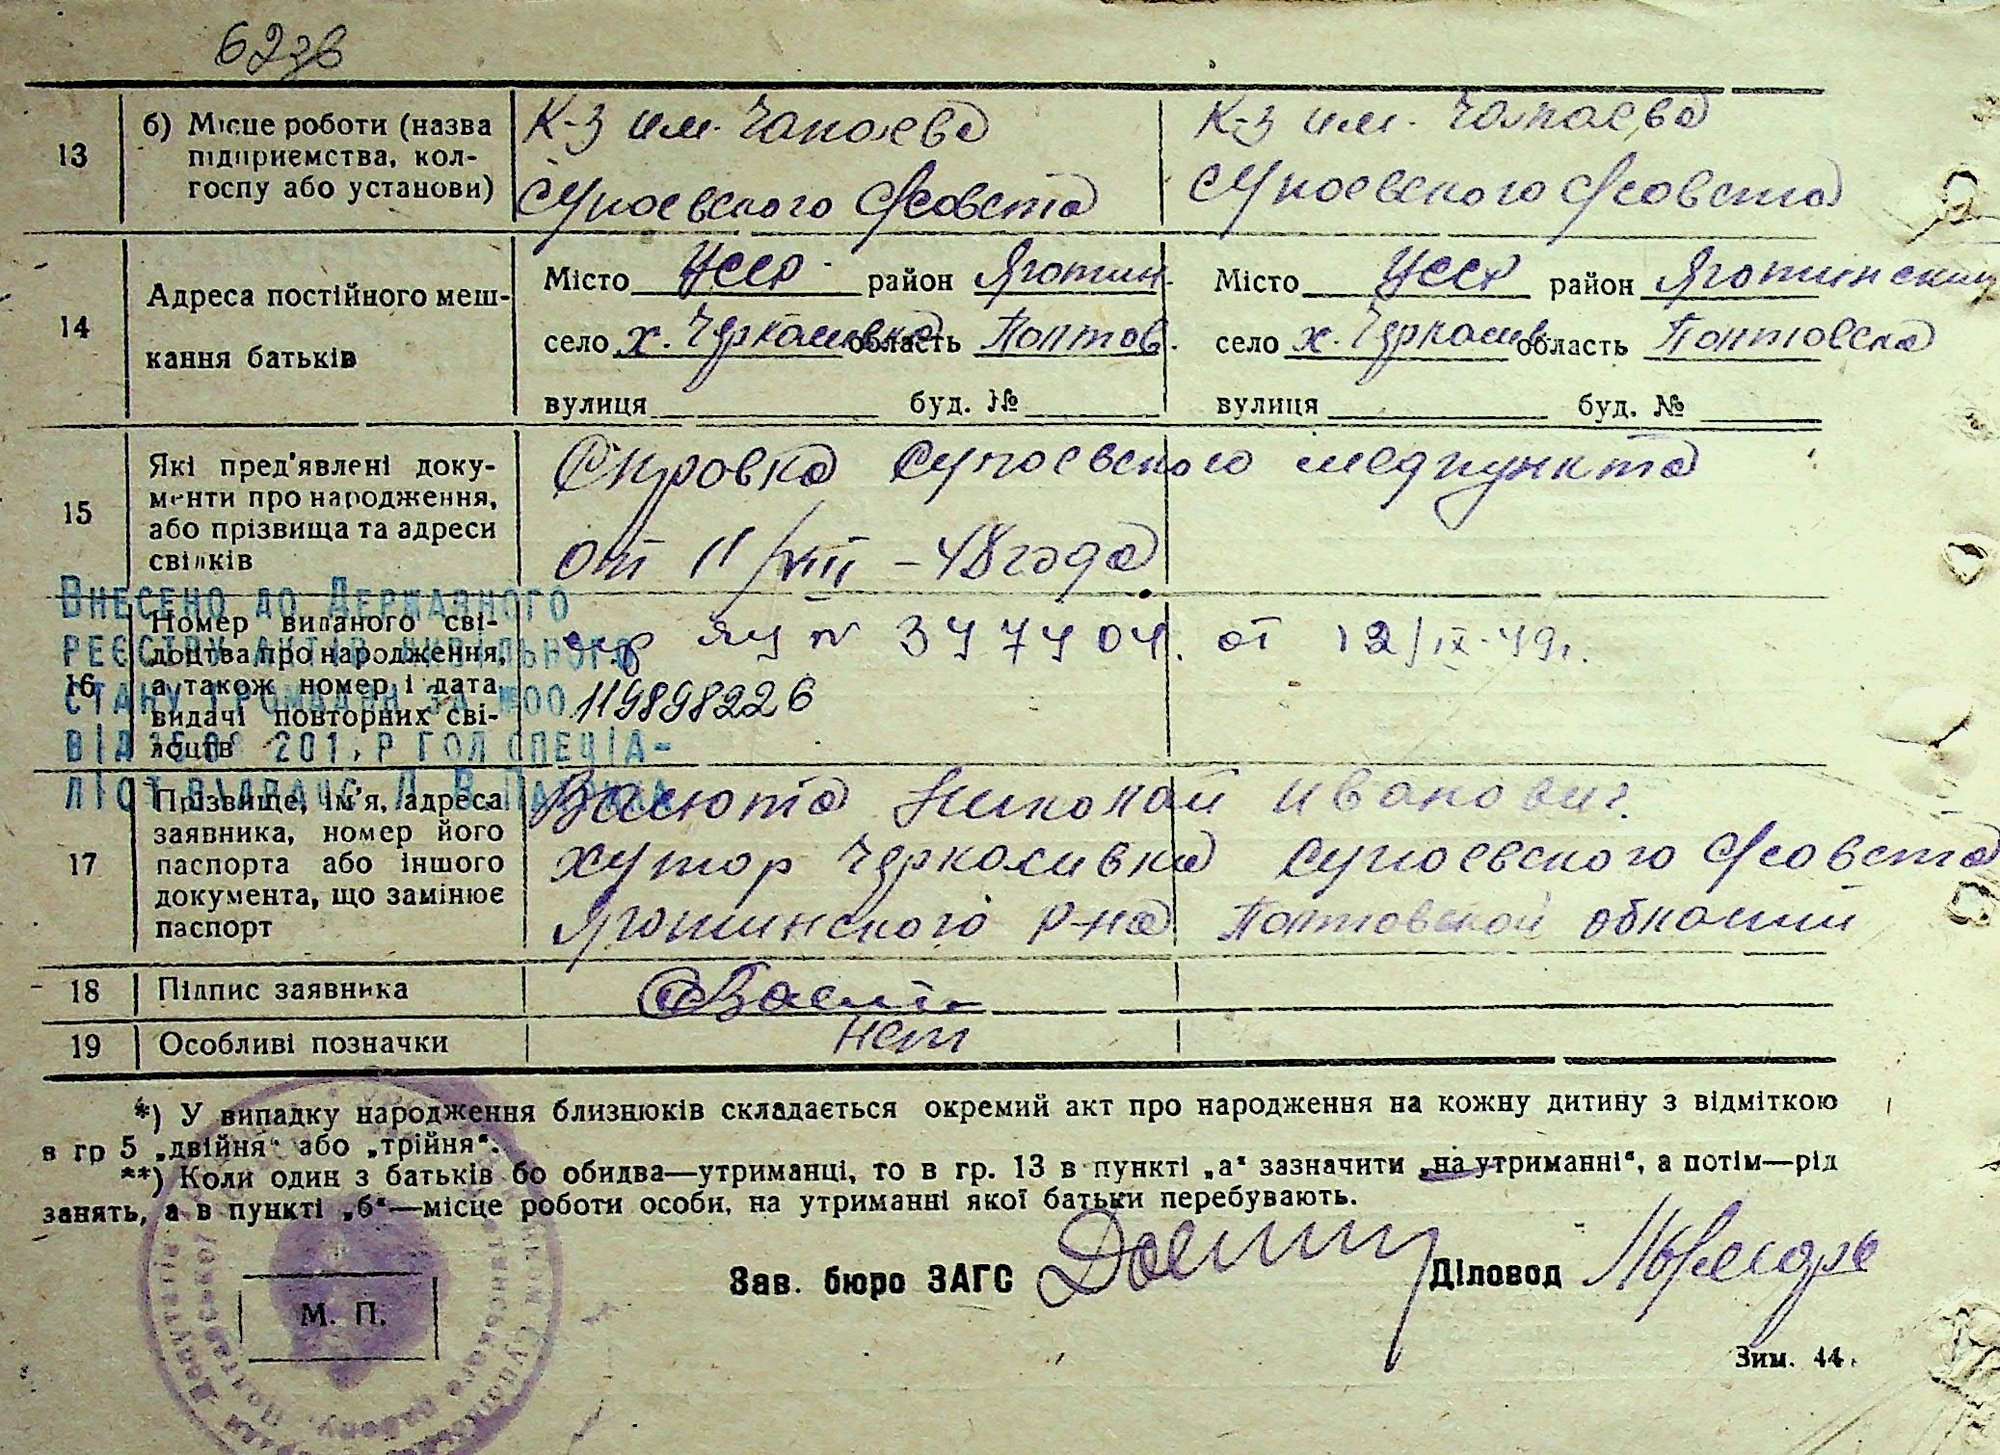 13 б) Місце роботи (назва підприємства, колгоспу або установи)
К-з им. Чапаєва
Супоевского с/совета
К-з им. Чапаєва
Супоевского с/совета
14 Адреса постійного мешкання батьків
Місто УССР район Яготин.
село х. Черкасивка область Полтов.
вулиця буд. №
Місто УССР район Яготинский
село х. Черкасив область Полтовска
вулиця буд. №
15 Які пред'явлені документи про народження, або прізвища та адреси свідків
Справка Супоевского медпункта
от 11/VIII - 48 года
16 Номер виданого свідоцтва про народження, а також номер і дата видачі повторних свідоцтв
ЯУ № 347404. от 12/IX-49г.
Внесено до Державного
реєстру актів цивільного
стану громадян за №00 119898226
від 201 р гол спеціа-
ліст
17 Прізвище, ім'я, адреса заявника, номер його паспорта або іншого документа, що замінює паспорт
Васюта Николай Иванович.
хутор Черкасивка Супоевского с/совета
Яготинского р-на Полтовской области
18 Підпис заявника
19 Особливі позначки нет
*) У випадку народження близнюків складається окремий акт про народження на кожну дитину з відміткою
в гр 5 „двійня“ або „трійня“.
**) Коли один з батьків бо обидва—утриманці, то в гр. 13 в пункті „а“ зазначити „на утриманні“, а потім—рід
занять, а в пункті „б“—місце роботи особи, на утриманні якої батьки перебувають.
Зав. бюро ЗАГС Діловод
М. П.
Зим. 44.